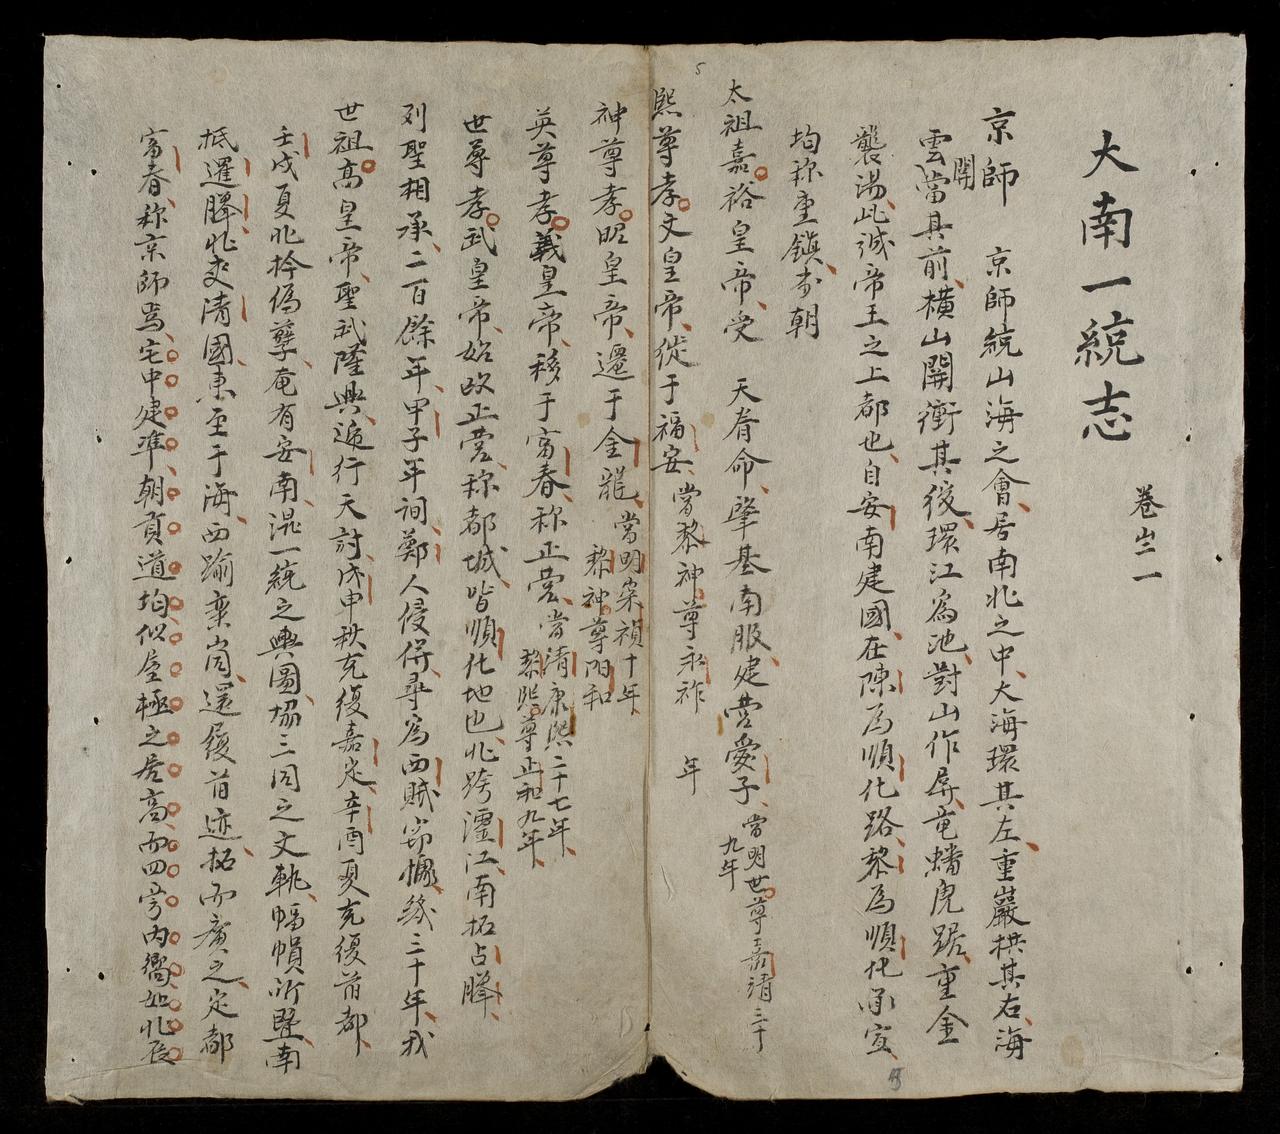 大南一統志
卷之一
京師 京師統山海之會居南北之中大海環其左重巖拱其右海
雲當其前橫山開衝其後環江為池對山作屏竜蟠虎踞重金
關
襲湯此誠帝王之上都也自安南建國在陳為順化路黎為順化承宣
均称重鎮本朝
太祖嘉裕皇帝受 天眷命肇基南服建营愛子
當明世尊嘉靖三十
九年
熙尊孝文皇帝從于福安當黎神尊永祚 年
神尊孝昭皇帝遷于金龍
當明崇禎十年
黎神尊陽和
英尊孝義皇帝移于富春称正营
當清康熙二十七年
黎熙尊正和九年
世尊孝武皇帝始改正营称都城皆順化地也北跨瀍江南拓占臘
列聖相承二百餘年甲子年詞鄭人侵併尋為西賊窃據幾三十年我
世祖高皇帝聖武隆興遞行天討戊申秋克復嘉定辛酉夏克復首都
壬戌夏北拎偽孽奄有安南混一統之輿圖恊三同之文軌幅幀所暨南
抵暹臘北夾清國東至于海西踰蛮崗還履首迹拓而廣之定都
富春称京師焉宅中建準朝貢道均似屋極之居高而四旁内嚮如北辰